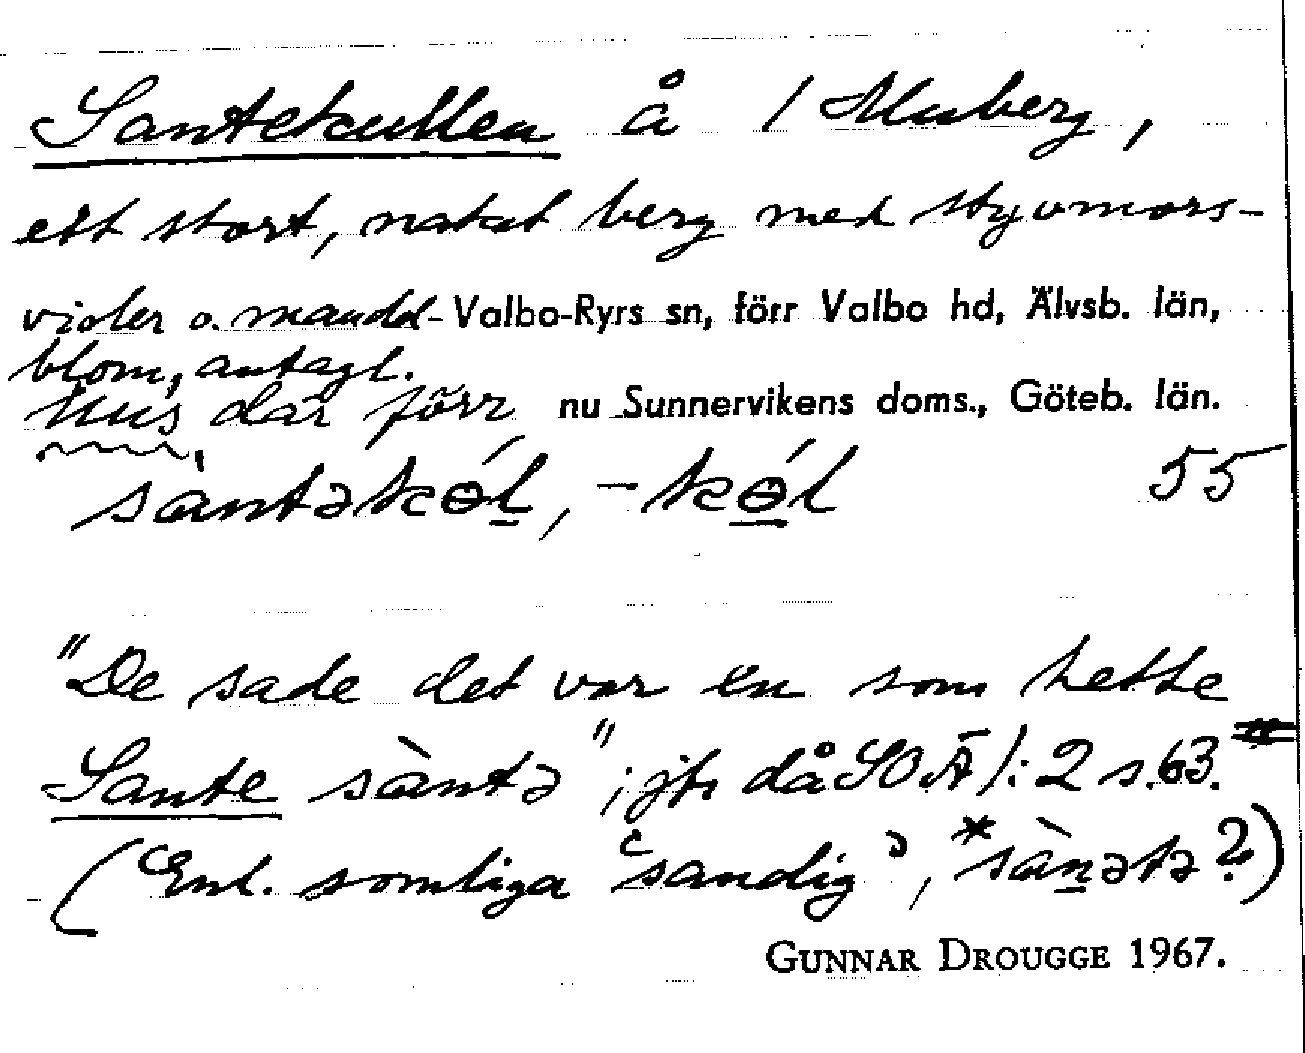 Santekullen å 1 Muberg,
ett stort, naket berg med styvmors-
violer o. mandel- Valbo-Ryrs sn, förr Valbo hd, Älvsb. län,
blom, antagl.
hus där förr nu Sunnervikens doms., Göteb. län.
sàntəkɵ́l, -kɵ́l 55
"De sade det var en som hette
Sante sàntə"; jfr då SOÄ 1:2 s. 63.
(Enl. somliga "sandig", *sànətə?)
GUNNAR DROUGGE 1967.